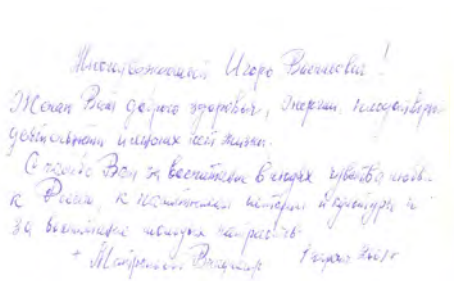 Многоуважаемый Игорь Васильевич!
Желаю Вам доброго здоровья, энергии, плодотворн
деятельности и
Спасибо Вам за воспитание в людях чувства любви
к России, к памятникам истории и культуры и
за воспитание молодых
+ Митрополит Владимир